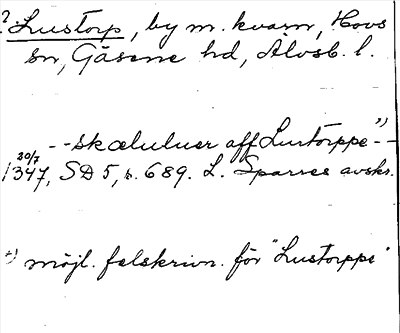 ? Lustorp, by m. kvarn, Hovs
sn, Gäsene hd, Älvsb. l.
--skæluluer aff Lustorppe x) --
20/7
1347, SD 5, s. 689. L. Sparres avskr.
x) möjl. felskrivn. för "Lustorppe"